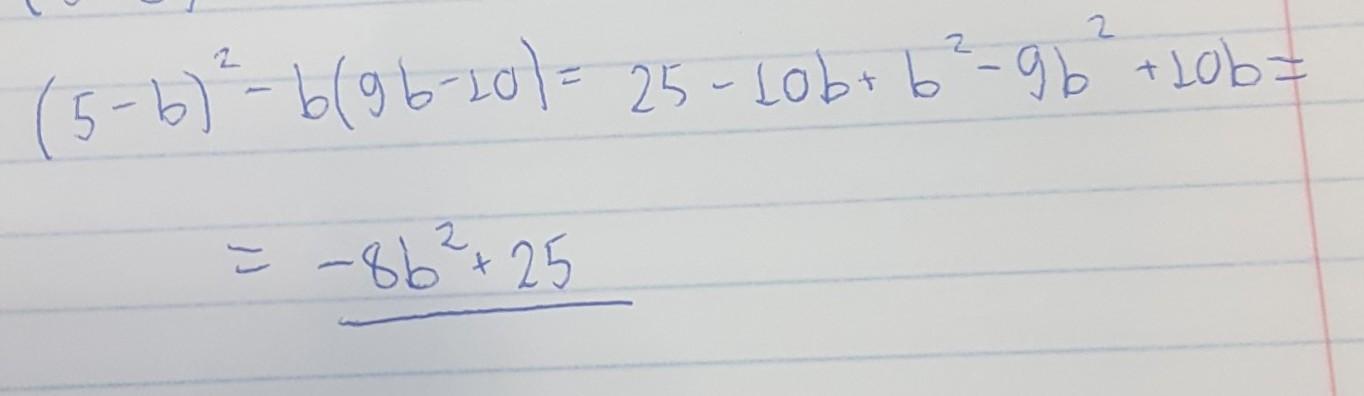 (5-b)² - b(9b-10) = 25 - 10b + b² - 9b² + 10b =
= -8b² + 25